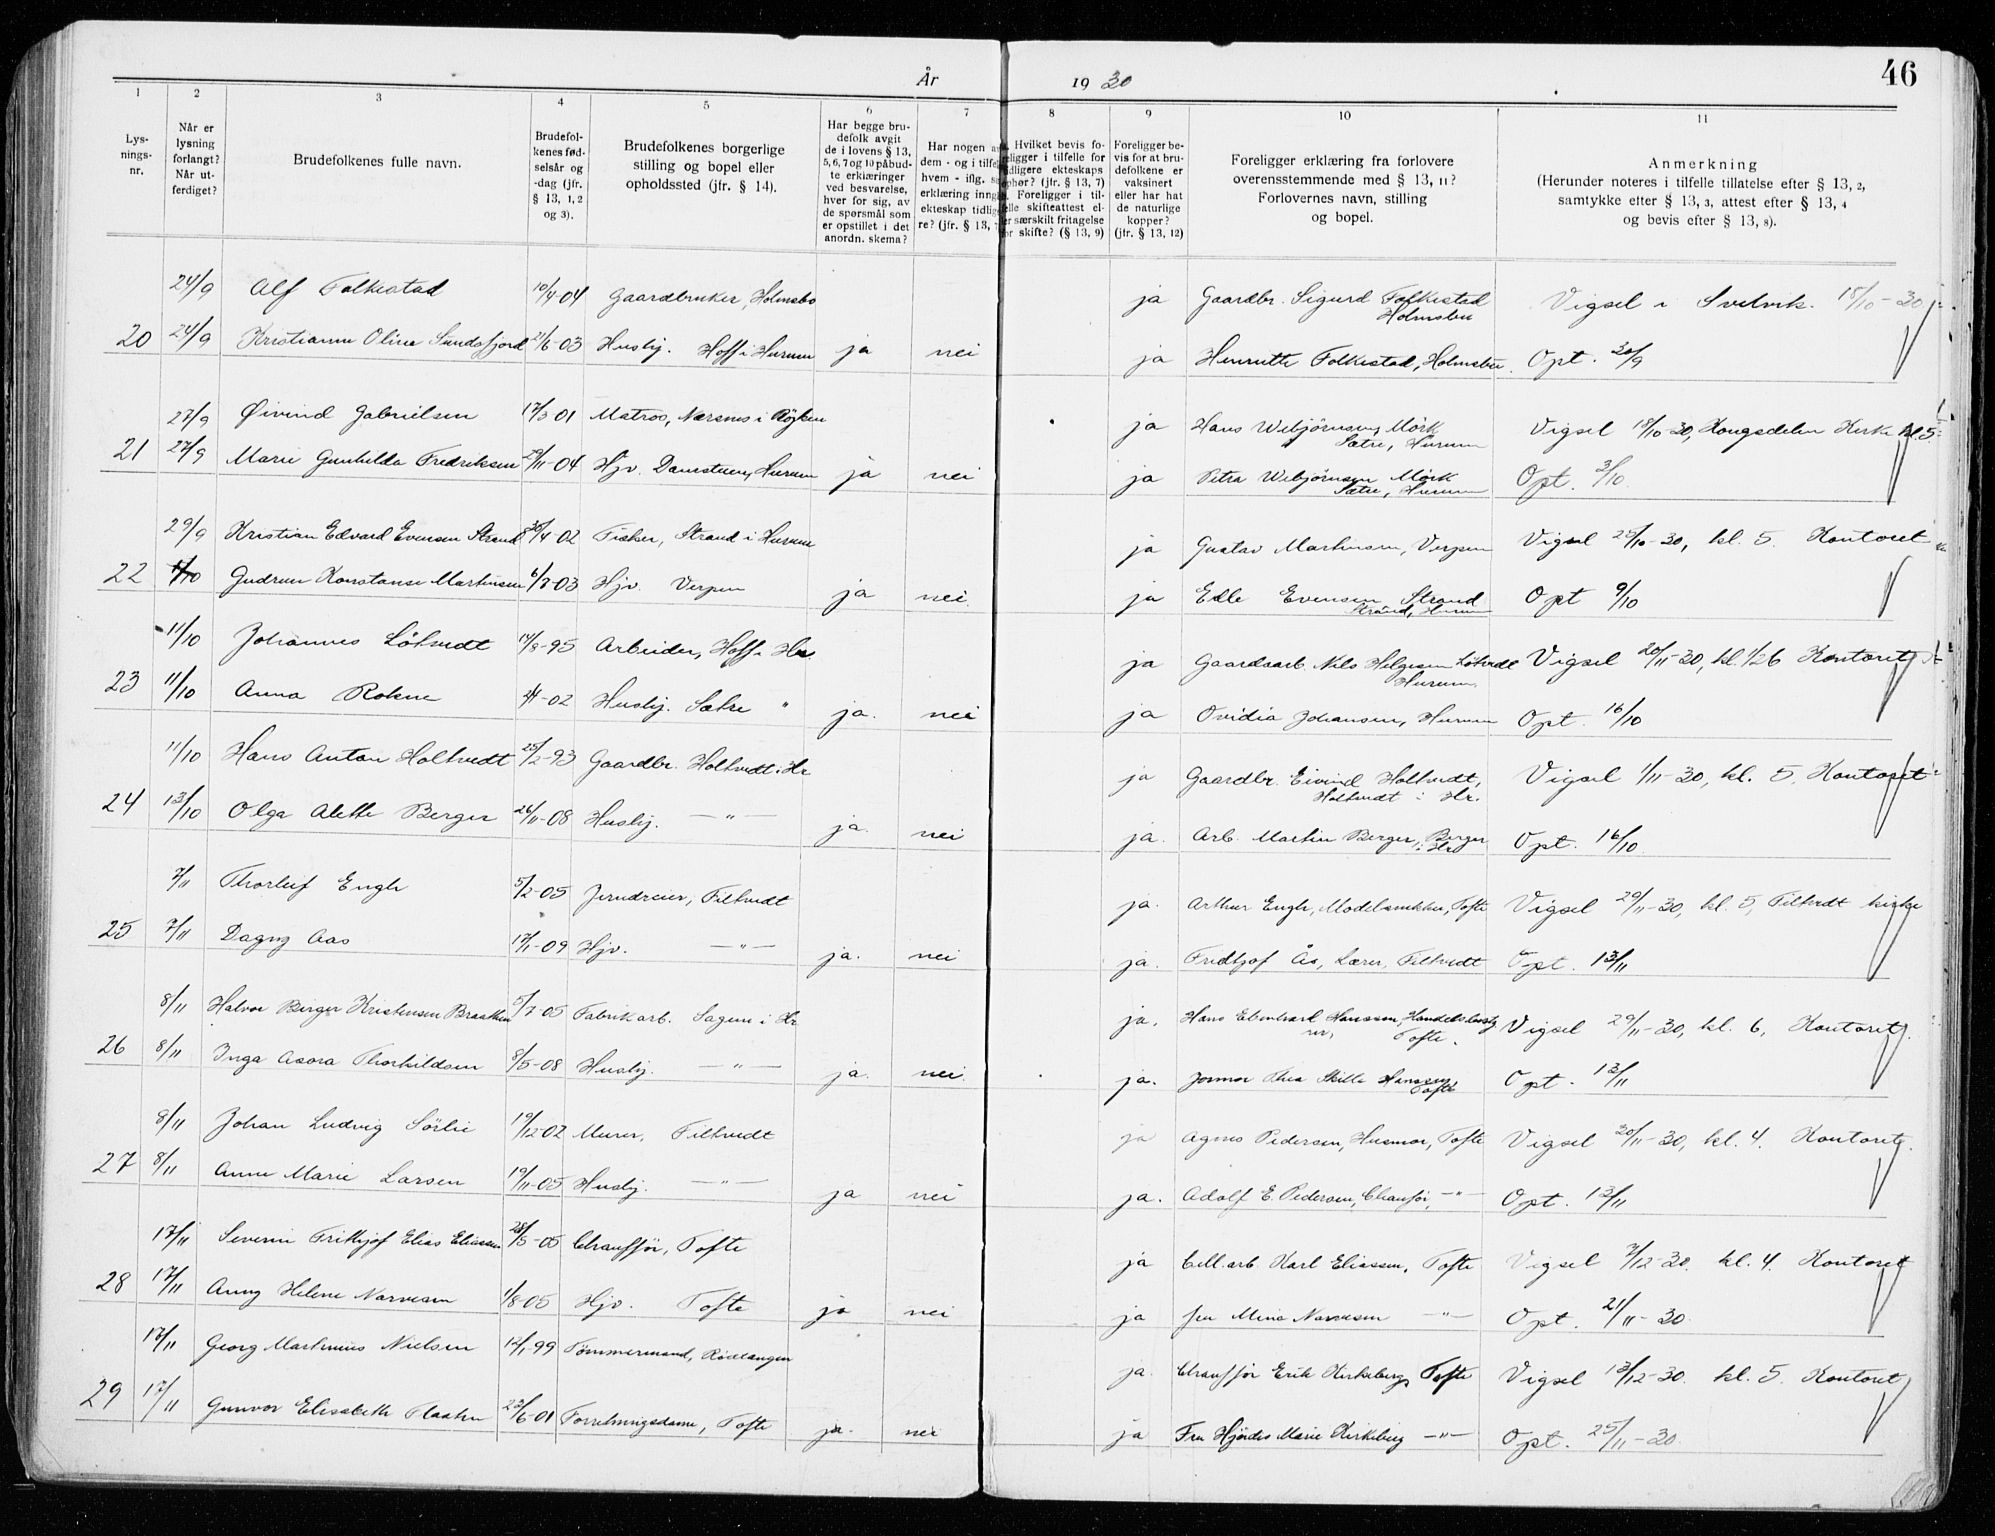 År 1930
46
1 2 3 4 5 6 7 8 9 10 11
Lys-
nings-
nr.
Når er
lysning
forlangt?
Når ut-
ferdiget?
Brudefolkenes fulle navn.
Brudefol-
kenes fød-
selsår og
-dag (jfr.
§ 13, 1, 2
og 3).
Brudefolkenes borgerlige
stilling og bopel eller
opholdssted (jfr. § 14).
Har begge bru-
defolk avgit
de i lovens § 13,
5, 6, 7 og 10 påbud-
te erklæringer
ved besvarelse,
hver for sig, av
de spørsmål som
er opstillet i det
anordn. skema?
Har nogen a
dem - og i tilfe
hvem - iflg.
erklæring inng
ekteskap tidlig
re? (jfr. § 13,
Hvilket bevis fo-
religger i tilfelle for
tidligere ekteskaps
ophør? (jfr. § 13, 7)
Foreligger i til-
felle skifteattest el-
er særskilt fritagelse
for skifte? (§ 13, 9)
Foreligger be-
vis for at bru-
defolkene er
vaksinert
eller har hat
de naturlige
kopper?
(jfr. § 13, 12)
Foreligger erklæring fra forlovere
overensstemmende med § 13, 11?
Forlovernes navn, stilling
og bopel.
Anmerkning
(Herunder noteres i tilfelle tillatelse efter § 13, 2,
samtykke efter § 13, 3, attest efter § 13, 4
og bevis efter § 13, 8).
24/9 Alf Folkestad 10/4-04 Gaardbruker, Holmsbo ja Gaardbr. Sigurd Folkestad Holmsbu Vigsel i Svelvik. 18/10-30
20 24/9 Kristianne Oline Sundsfjord 21/6-03 Husbj. Hoff i Hurum ja nei ja Henriette Folkestad, Holmsbu. Opt. 30/9
27/9 Øivind Gabrielsen 17/3 01 Matros, Nærsnes i Røyken ja Hans Webjørnsen Mörk Sætre, Hurum Vigsel 18/10-30, Kongsdelen Kirke kl. 5
21 27/9 Marie Gunhilda Fredriksen 29/11-04 Hjv. Damstuen, Hurum ja nei ja Petra Webjørnsen Mörk Sætre, Hurum Opt. 3/10
29/9 Kristian Edvard Evensen Strand 30/4-02 Fisker, Strand i Hurum ja Gustav Martinsen, Verpen Vigsel 25/10-30, kl. 5. Kontoret
22 Gudrun Konstanse Martinsen 6/8-03 Hjv. Verpen ja nei. ja Edle Evensen Strand Strand, Hurum Opt 9/10
11/10 Johannes Löhvedt 14/8-95 Arbeider, Hoff i Hr. ja Gaardsarb. Nils Helgesen Löhvedt Hurum. Vigsel 20/11-30, kl. 1/26 Kontoret
23 11/10 Anna Rokne -02 Husbj. Sætre " ja. nei ja Ovidia Johansen, Hurum Opt. 16/10
11/10 Hans Anton Holtvedt 25/2-93 Gaardbr. Holtvedt i Hr ja Gaardbr. Eivind Holtvedt, Holtvedt i Hr. Vigsel 1/11-30, kl. 5, Kontoret
24 13/10 Olga Alette Berger 26/11-08 Husbj. —"— ja. nei ja. Arb. Martin Berger, Berger i Hr Opt. 16/10
7/11 Thorleif Engh 5/2-05 Jerndreier, Filtvedt ja. Arthur Engh, Modelsnekker, Tofte Vigsel 29/11-30, kl. 5, Filtvedt kirke
25 7/11 Dagny Aas 17/1-09 Hjv. —"— ja. nei ja. Fridtjof Ås, Lærer, Filtvedt Opt. 13/11
8/11 Halvor Birger Kristensen Braathen 5/7-05 Fabrikarb. Sagene i Hr ja. Hans Edenhard Hanssen, Tofte. Vigsel 29/11-30, kl. 6, Kontoret.
26 8/11 Inga Asora Thorkildsen 8/5-08 Husbj. —"— ja. nei. ja. Hanssen Tofte Opt. 13/11
8/11 Johan Ludvig Sörlie 19/12-02 Murer, Filtvedt ja Agnes Pedersen, Husmor, Tofte Vigsel 30/11-30, kl. 4. Kontoret.
27 8/11 Anne Marie Larsen 19/11-05 Husbj. —"— ja nei ja. Adolf E. Pedersen, Chauffør, —"— Opt. 13/11
17/11 Severin Frithjof Elias Eliassen 28/5-05 Chauffør, Tofte ja Cell.arb. Karl Eliassen, Tofte Vigsel 7/12-30. kl. 4. Kontoret
28 17/11 Anny Helene Narvesen 1/8-05 Hjv. Tofte ja nei ja fru Mina Narvesen —"— Opt. 21/11-30.
17/11 Georg Martinius Nielsen 12/1-99 Tømmermand, Rödtangen ja. Chauffør Erik Kirkeberg, Tofte Vigsel 13/12-30. kl. 5. Kontoret
29 17/11 Gunvor Elisabeth Flaaten 23/6-01 Forretningsdame, Tofte ja. nei ja Fru Hjördis Marie Kirkeberg —"— Opt. 25/11-30.